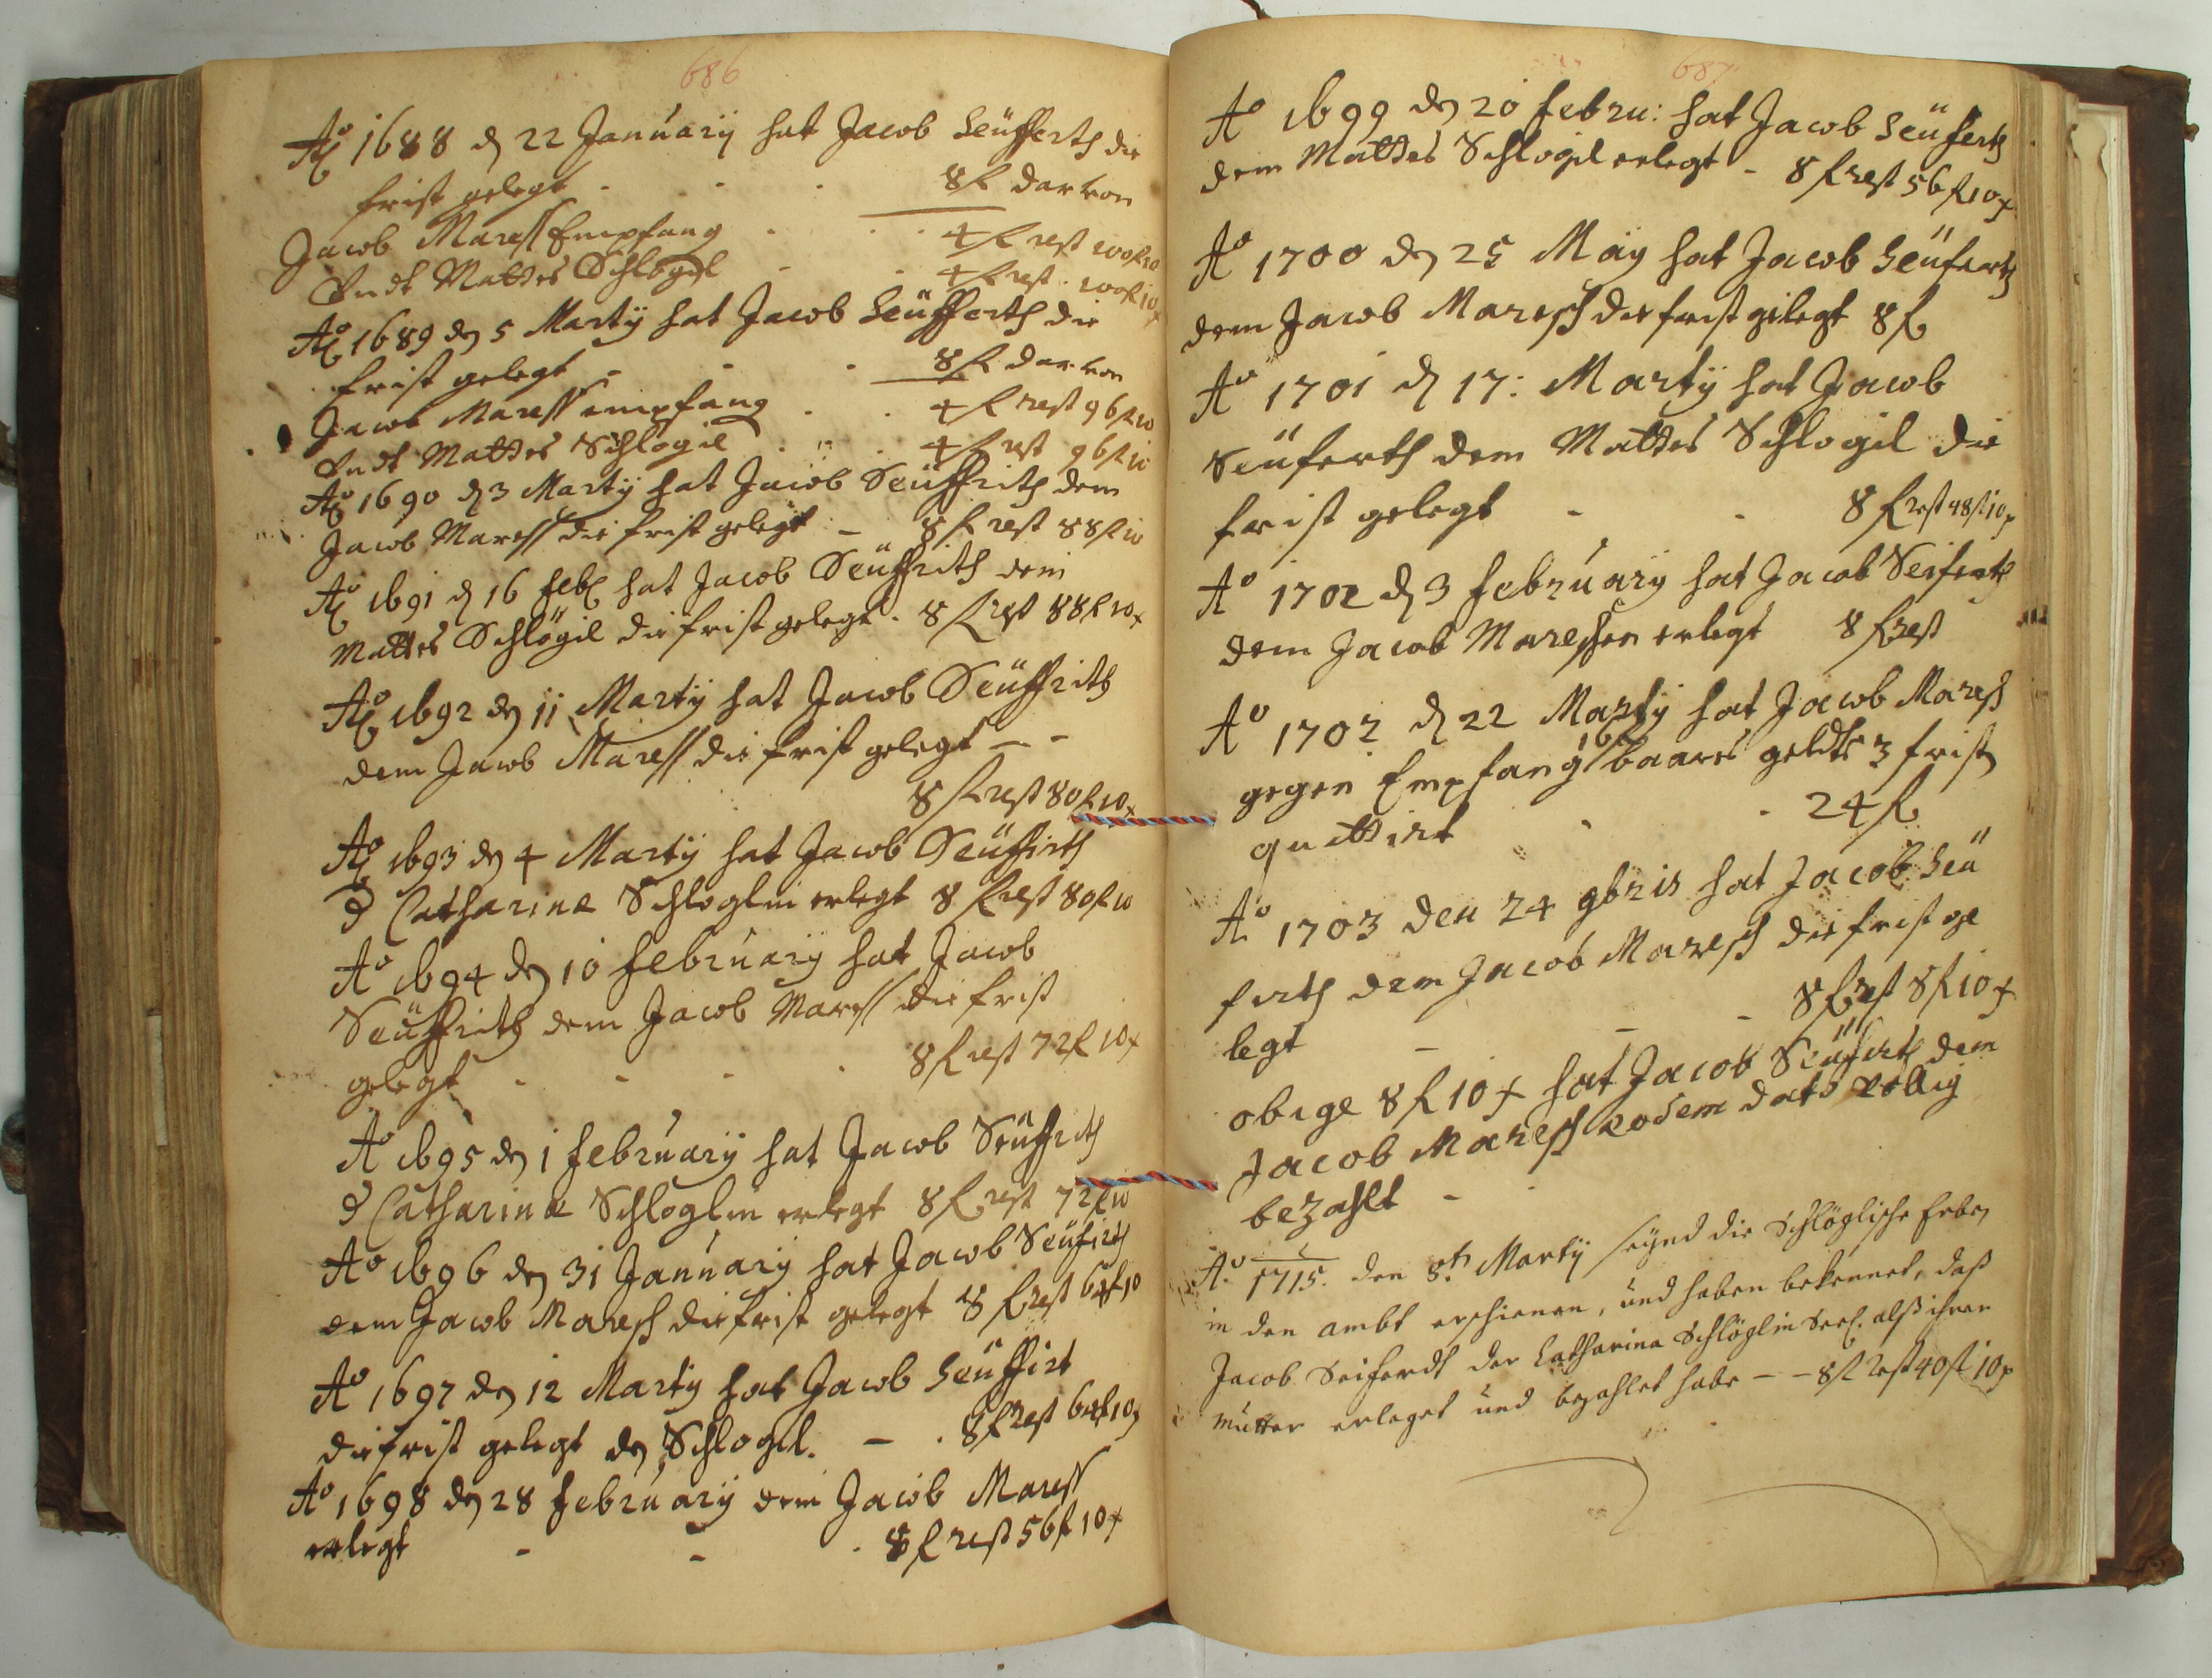 686
Ao 1688 dn 22 January hat Jacob Seüfferth die
frist gelegt - - - 8 fl darvon
Jacob Maress Empfang - - 4 fl rest 100 fl 10
Undt Mattes Schlögel - - 4 fl rest 100 fl 10 x
Ao 1689 den 5 Martÿ hat Jacob Seüfferth die
frist gelegt - - - 8 fl darvon
Jacob Maress empfang - - 4 fl rest 96 fl 10
Undt Mattes Schlögil - - 4 fl rest 96 fl 10
Ao 1690 dn 3 Martÿ hat Jacob Seüffrith dem
Jacob Maress die frist gelegt - 8 fl rest 88 fl 10
Ao 1691 dn 16 feb hat Jacob Seüffrith dem
Mattes Schlögil die frist gelegt - 8 fl rest 88 fl 10 x
Ao 1692 den 11 Martÿ hat Jacob Seüffrith
dem Jacob Maress die frist gelegt - -
8 fl rest 80 fl 10 x
Ao 1693 den 4 Martÿ hat Jacob Seüffirth
d Catharina Schloglin erlegt 8 fl rest 80 fl 10
Ao 1694 den 10 februarÿ hat Jacob
Seüffrith dem Jacob Maress die frist
gelegt - - - - 8 fl rest 72 fl 10 x
Ao 1695 den 1 februarÿ hat Jacob Seüffrith
d Catharina Schloglin erlegt 8 fl rest 72 fl 10
Ao 1696 den 31 Januarÿ hat Jacob Seüfirth
dem Jacob Maresch die frist gelegt 8 fl rest 64 fl 10
Ao 1697 den 12 Martÿ hat Jacob Seüffirt
die frist gelegt den Schlogil. - - 8 fl rest 64 fl 10 x
Ao 1698 den 28 februarÿ dem Jacob Maress
erlegt - - - 8 fl rest 56 fl 10 x
687
Ao 1699 den 20 febru: hat Jacob Seüferth
dem Mattes Schlogil erlegt - 8 fl rest 56 fl 10 x
Ao 1700 den 25 Maÿ hat Jacob Seüferth
dem Jacob Maresch die frist gelegt 8 fl
Ao 1701 dn 17: Martÿ hat Jacob
Seüferth dem Mattes Schlogil die
frist gelegt - - 8 fl rest 48 fl 10 x
Ao 1702 dn 3 februarÿ hat Jacob Seiferth
dem Jacob Mareschen erlegt 8 fl rest
Ao 1702 dn 22 Martÿ hat Jacob Maresch
gegen Empfang 16 fl baares geldts 3 frist
quittirt - - 24 fl
Ao 1703 den 24 9bris hat Jacob Seü
firth dem Jacob Maresch die frist ge
legt - - - 8 fl rest 8 fl 10 x
obige 8 fl 10 x hat Jacob Seüfirth dem
Jacob Maresch eodem dato völlig
bezahlt - -
Ao. 1715. den 8tn Martÿ seÿnd die Schlöglische Erben
in den ambt erschienen, und haben bekennet, daß
Jacob Seiferdt der Catharina Schlöglin Seel. alß ihrer
mutter erleget und bezahlet habe - - 8 fl Rest 40 fl 10 x